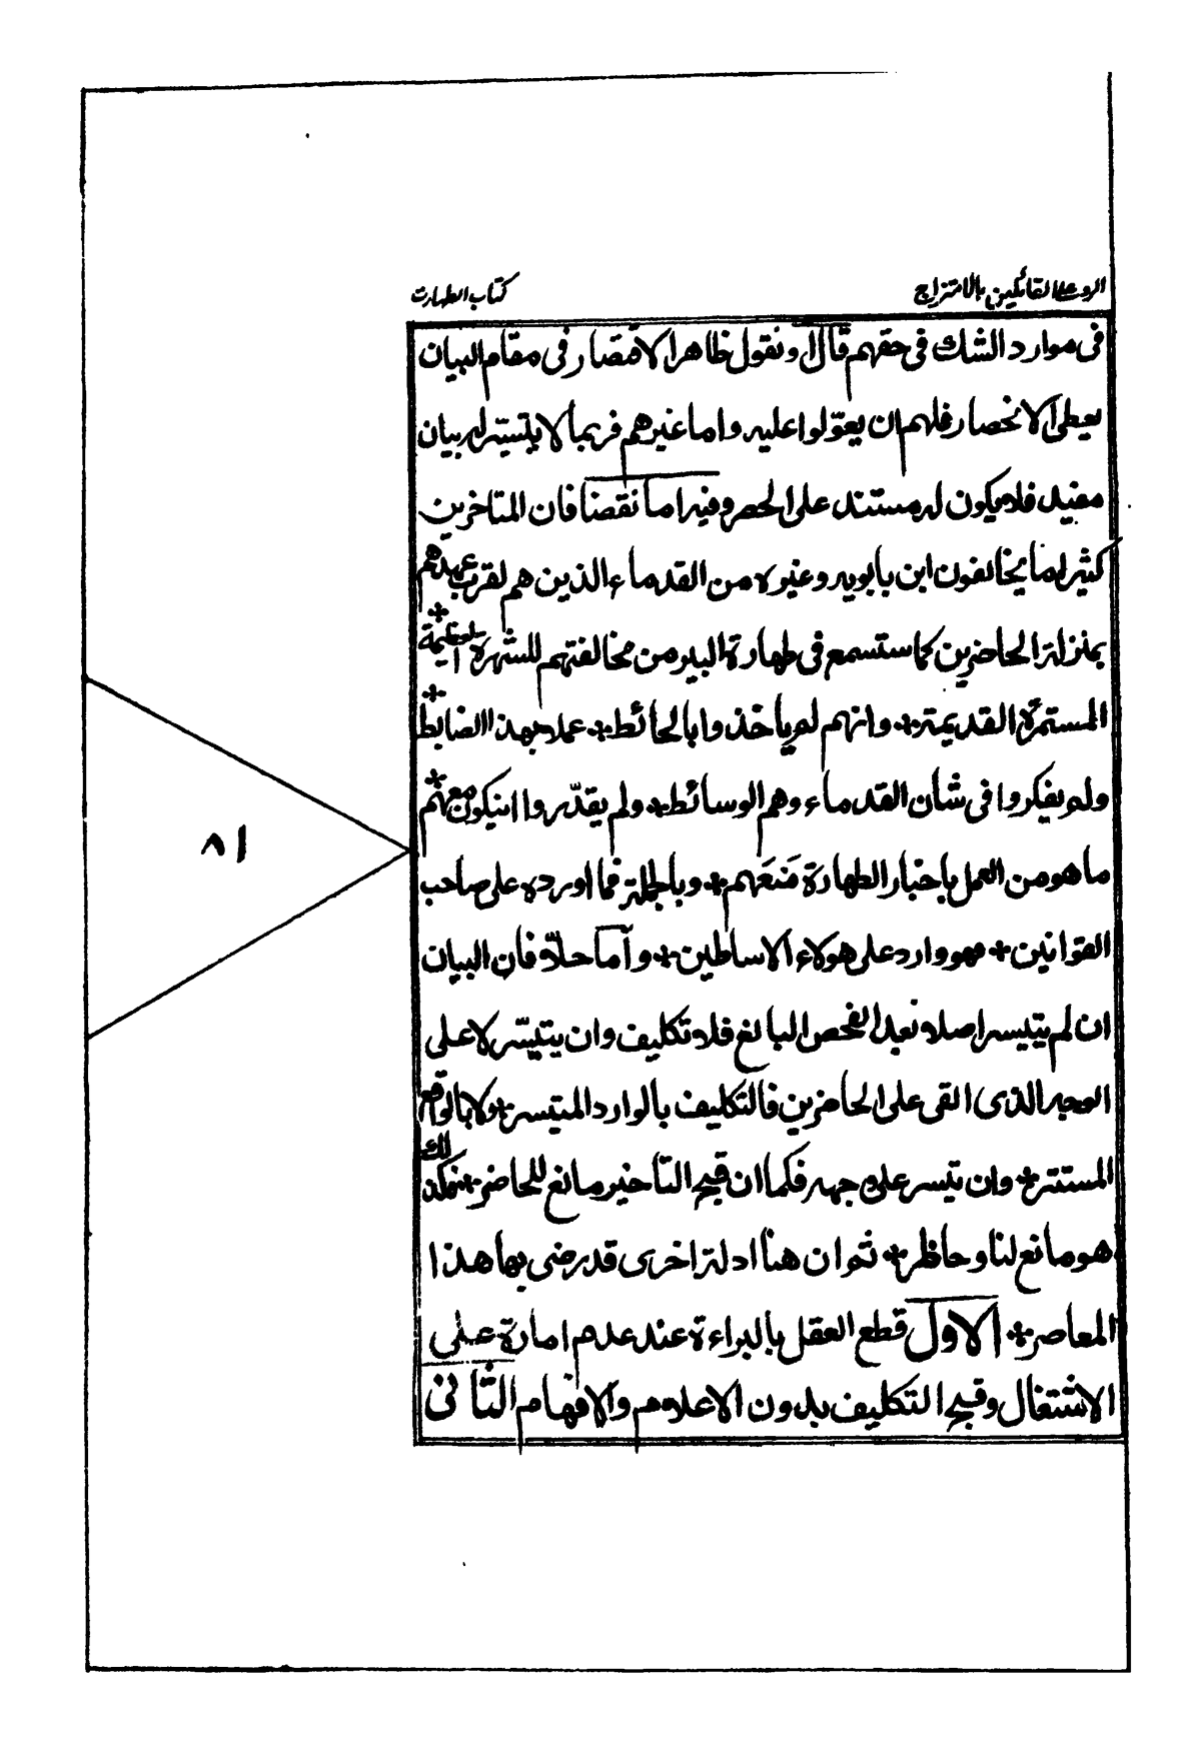 الرد على القائلين بالامتزاج
كتاب الطهارت
فى موارد الشك فى حقهم قال ونقول ظاهر الاقتصار فى مقام البيان
يعطى الانحصار فلهم ان يعوّلوا عليه واما غيرهم فربما لا يتيسّر له بيان
مفيد فلا يكون له مستند على الحصر وفيه اما نقضا فان المتاخرين
كثيرا ما يخالفون ابن بابويه وغيره من القدماء الذين هم لقرب عهدهم
بمنزلة الحاضرين كما ستسمع فى طهارة البير من مخالفتهم للشهرة العظيمة
المستمرّة القديمة * وانهم لم ياخذوا بالحائط * عملا بهذا الضابط
ولم يفكروا فى شأن القدماء وهم الوسائط * ولم يقدّروا انيكون معهم *
ما هو من العمل باخبار الطهارة مَنَعَهم * وبالجملة فما اورده على صاحب
القوانين * فهو وارد على هولاء الاساطين * وآما حلّا فان البيان
ان لم يتيسر اصلا بعد الفحص البالغ فلا تكليف وان يتيسّر لا على
الوجه الذى القى على الحاضرين فالتكليف بالوارد المتيسر * ولا بالواقع
المستتر * وان تيسر على وجهه فكما ان قبح التأخير مانع للحاضر * فكذلك
هو مانع لنا وحاظر * ثم ان هنا ادلة اخرى قد رضى بها هذا
المعاصر * الاول قطع العقل بالبراءة عند عدم امارة على
الاشتغال وقبح التكليف بدون الاعلام والافهام الثانى
٨١